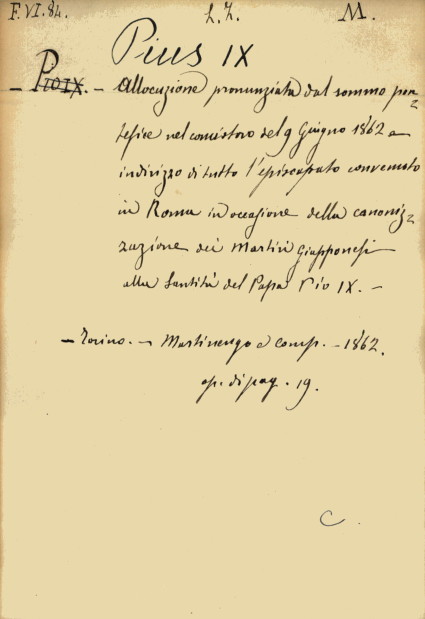 F.VI.84. L.Z. M.
Pius IX
- Pio IX. - Allocuzione pronunziata dal sommo pon=
tefice nel concistoro del 9 Giugno 1862 e
indirizzo di tutto l'episcopato convenuto
in Roma in occasione della canoniz=
zazione dei Martiri Giapponesi
alla Santità del Papa Pio IX. -
- Torino. - Martinengo e comp. - 1862.
op. di pag. 19.
C.